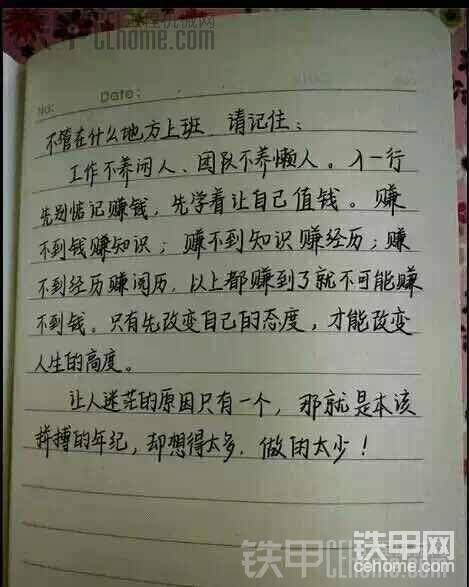 CEhome.com
No:
Date:
不管在什么地方上班,请记住:
工作不养闲人、团队不养懒人。入一行
先别惦记赚钱,先学着让自己值钱。赚
不到钱赚知识;赚不到知识赚经历;赚
不到经历赚阅历,以上都赚到了就不可能赚
不到钱。只有先改变自己的态度,才能改变
人生的高度。
让人迷茫的原因只有一个,那就是本该
拼搏的年纪,却想得太多,做的太少!
铁甲
CEhome.com
铁甲网
cehome.com